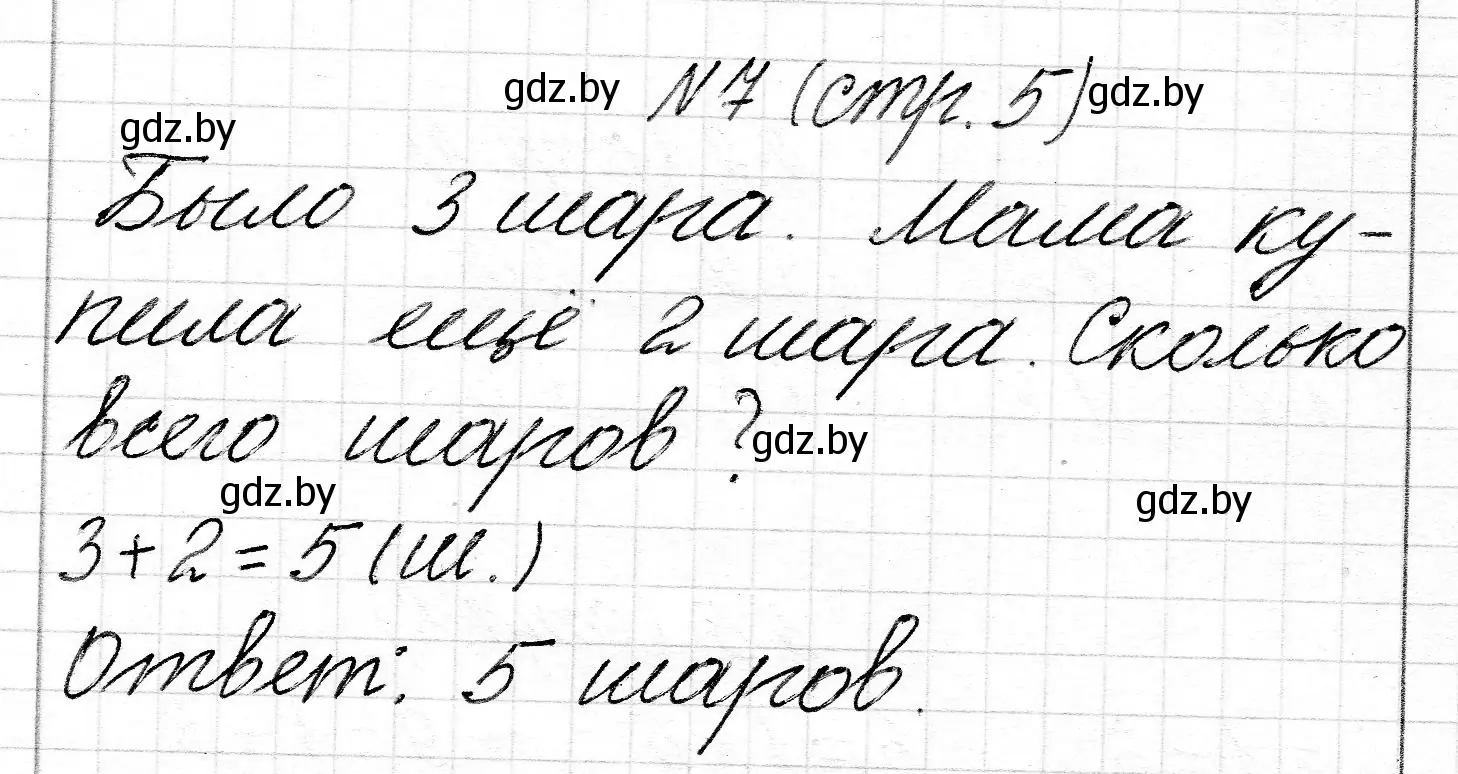 gdz.by №7 (стр. 5) gdz.by
gdz.by
Было 3 шара. Мама ку-
пила ещё 2 шара. Сколько
всего шаров? gdz.by
gdz.by gdz.by
3+2=5 (ш.)
Ответ: 5 шаров.